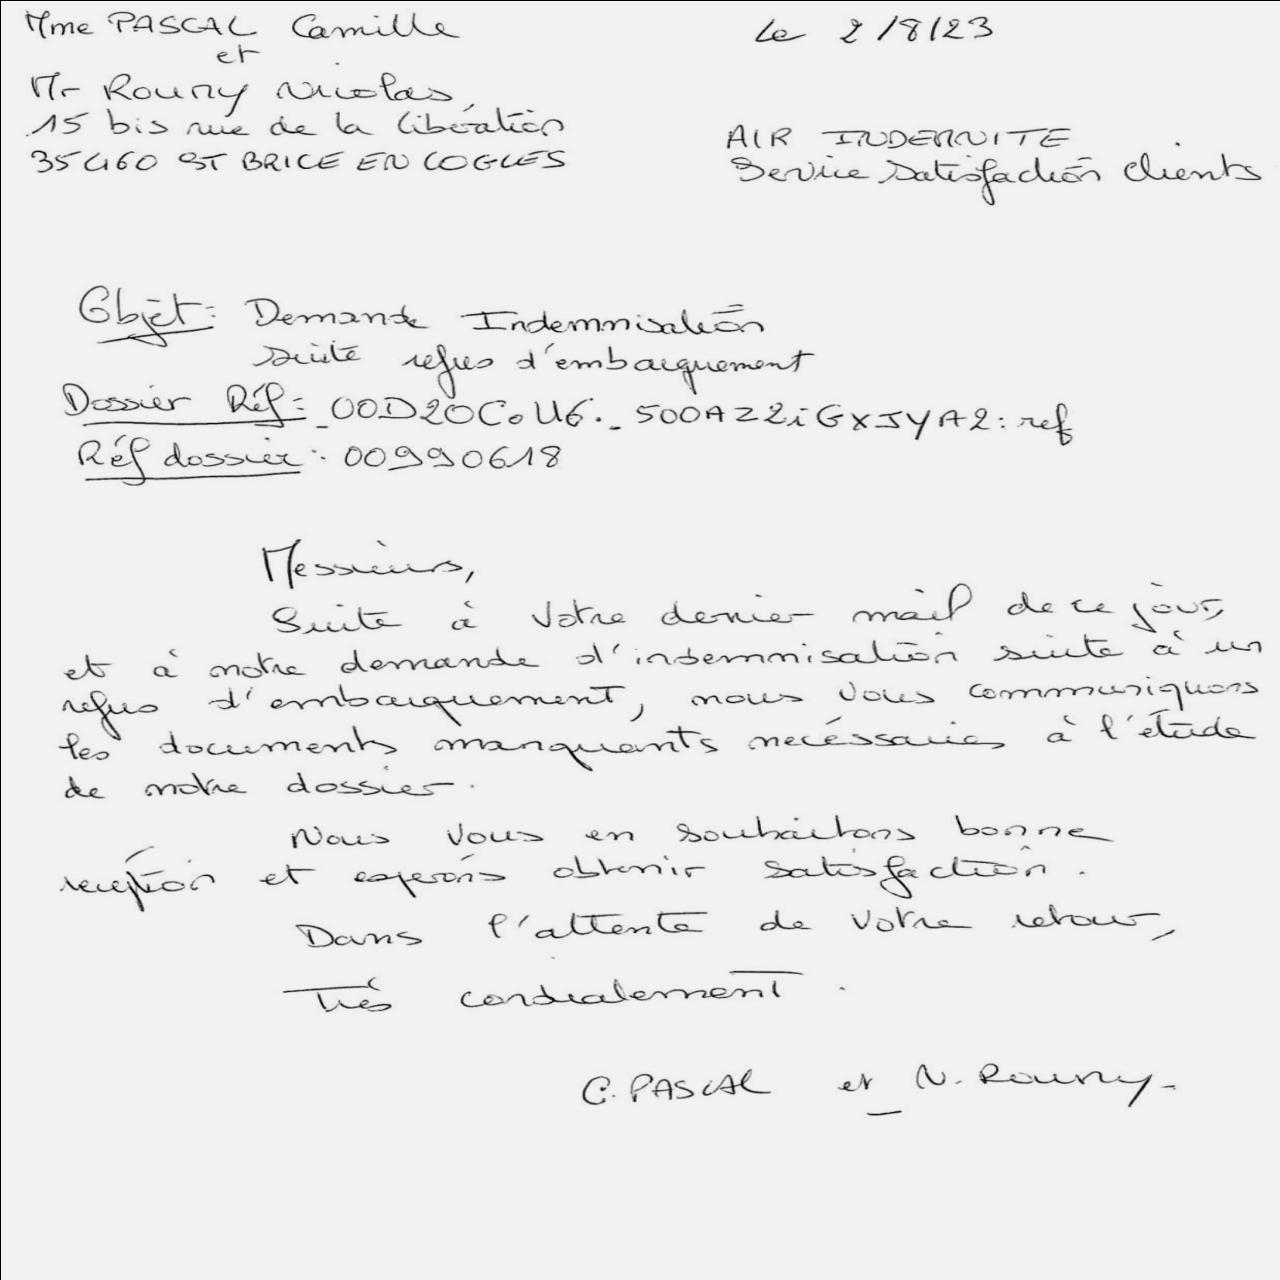 Mme PASCAL Camille
et
Mr Rouny Nicolas,
15 bis rue de la Libération
35460 ST BRICE EN COGLES
Le 2/8/23
AIR INDEMNITE
Service Satisfaction Clients
Objet: Demande Indemnisation
suite refus d'embarquement
Dossier Réf: _00D20CoU6._500AZ2iGxJYA2:ref
Réf dossier: 00990618
Messieurs,
Suite à votre dernier mail de ce jour,
et à notre demande d'indemnisation suite à un
refus d'embarquement, nous vous communiquons
les documents manquants necéssaires à l'étude
de notre dossier.
Nous vous en souhaitons bonne
réception et espérons obtenir satisfaction.
Dans l'attente de votre retour,
Très cordialement.
C. PASCAL et N. Rouny-